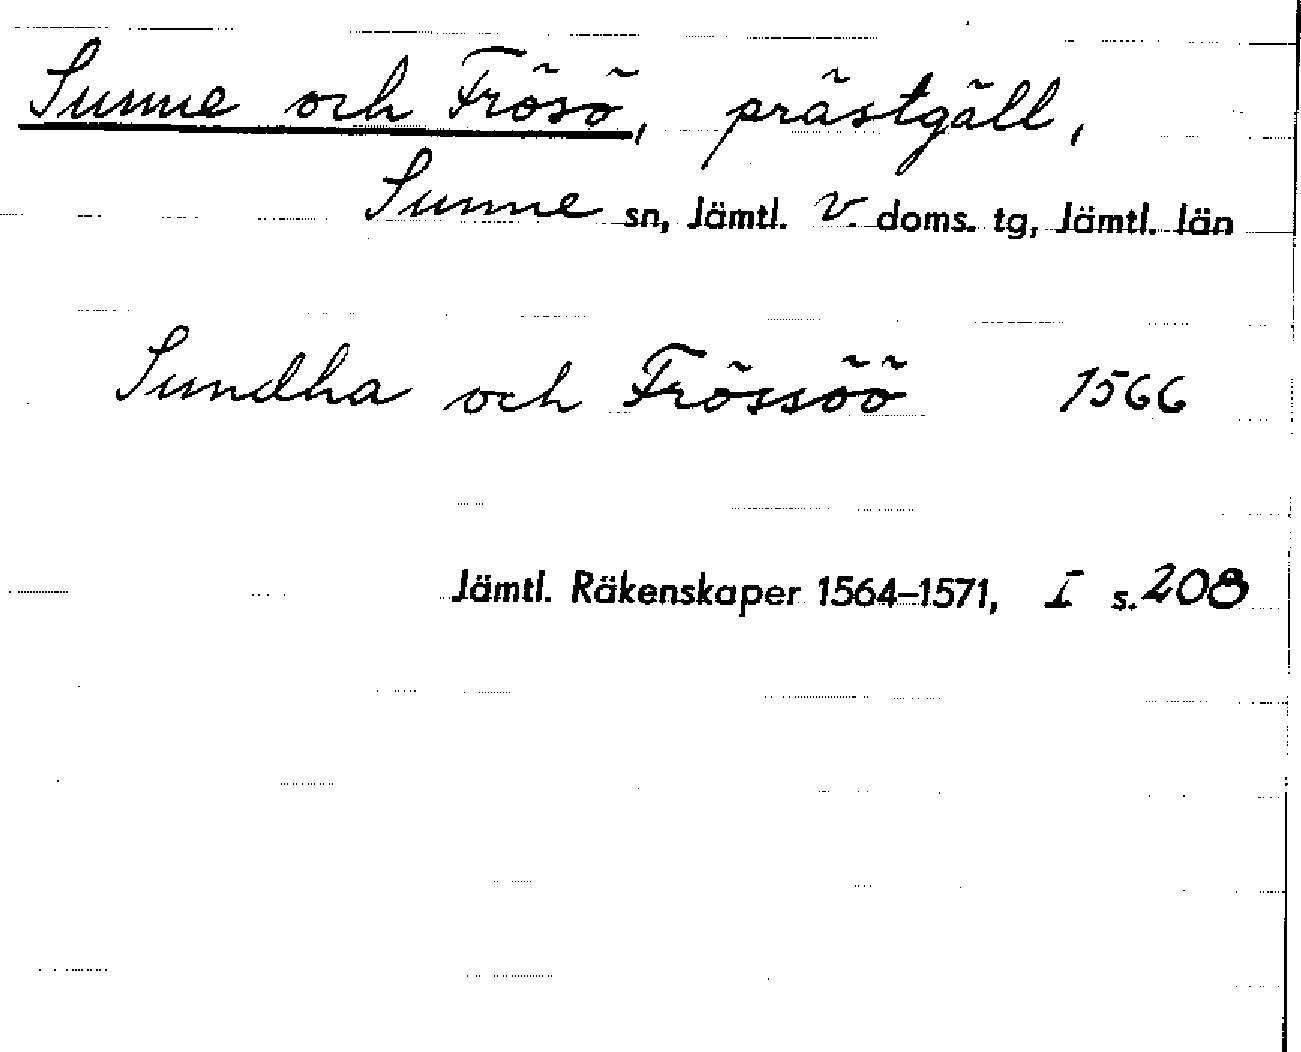 Sunne och Frösö, prästgäll,
Sunne sn, Jämtl. V. doms. tg, Jämtl. län
Sundha och Frössöö 1566
Jämtl. Räkenskaper 1564–1571, I s. 208